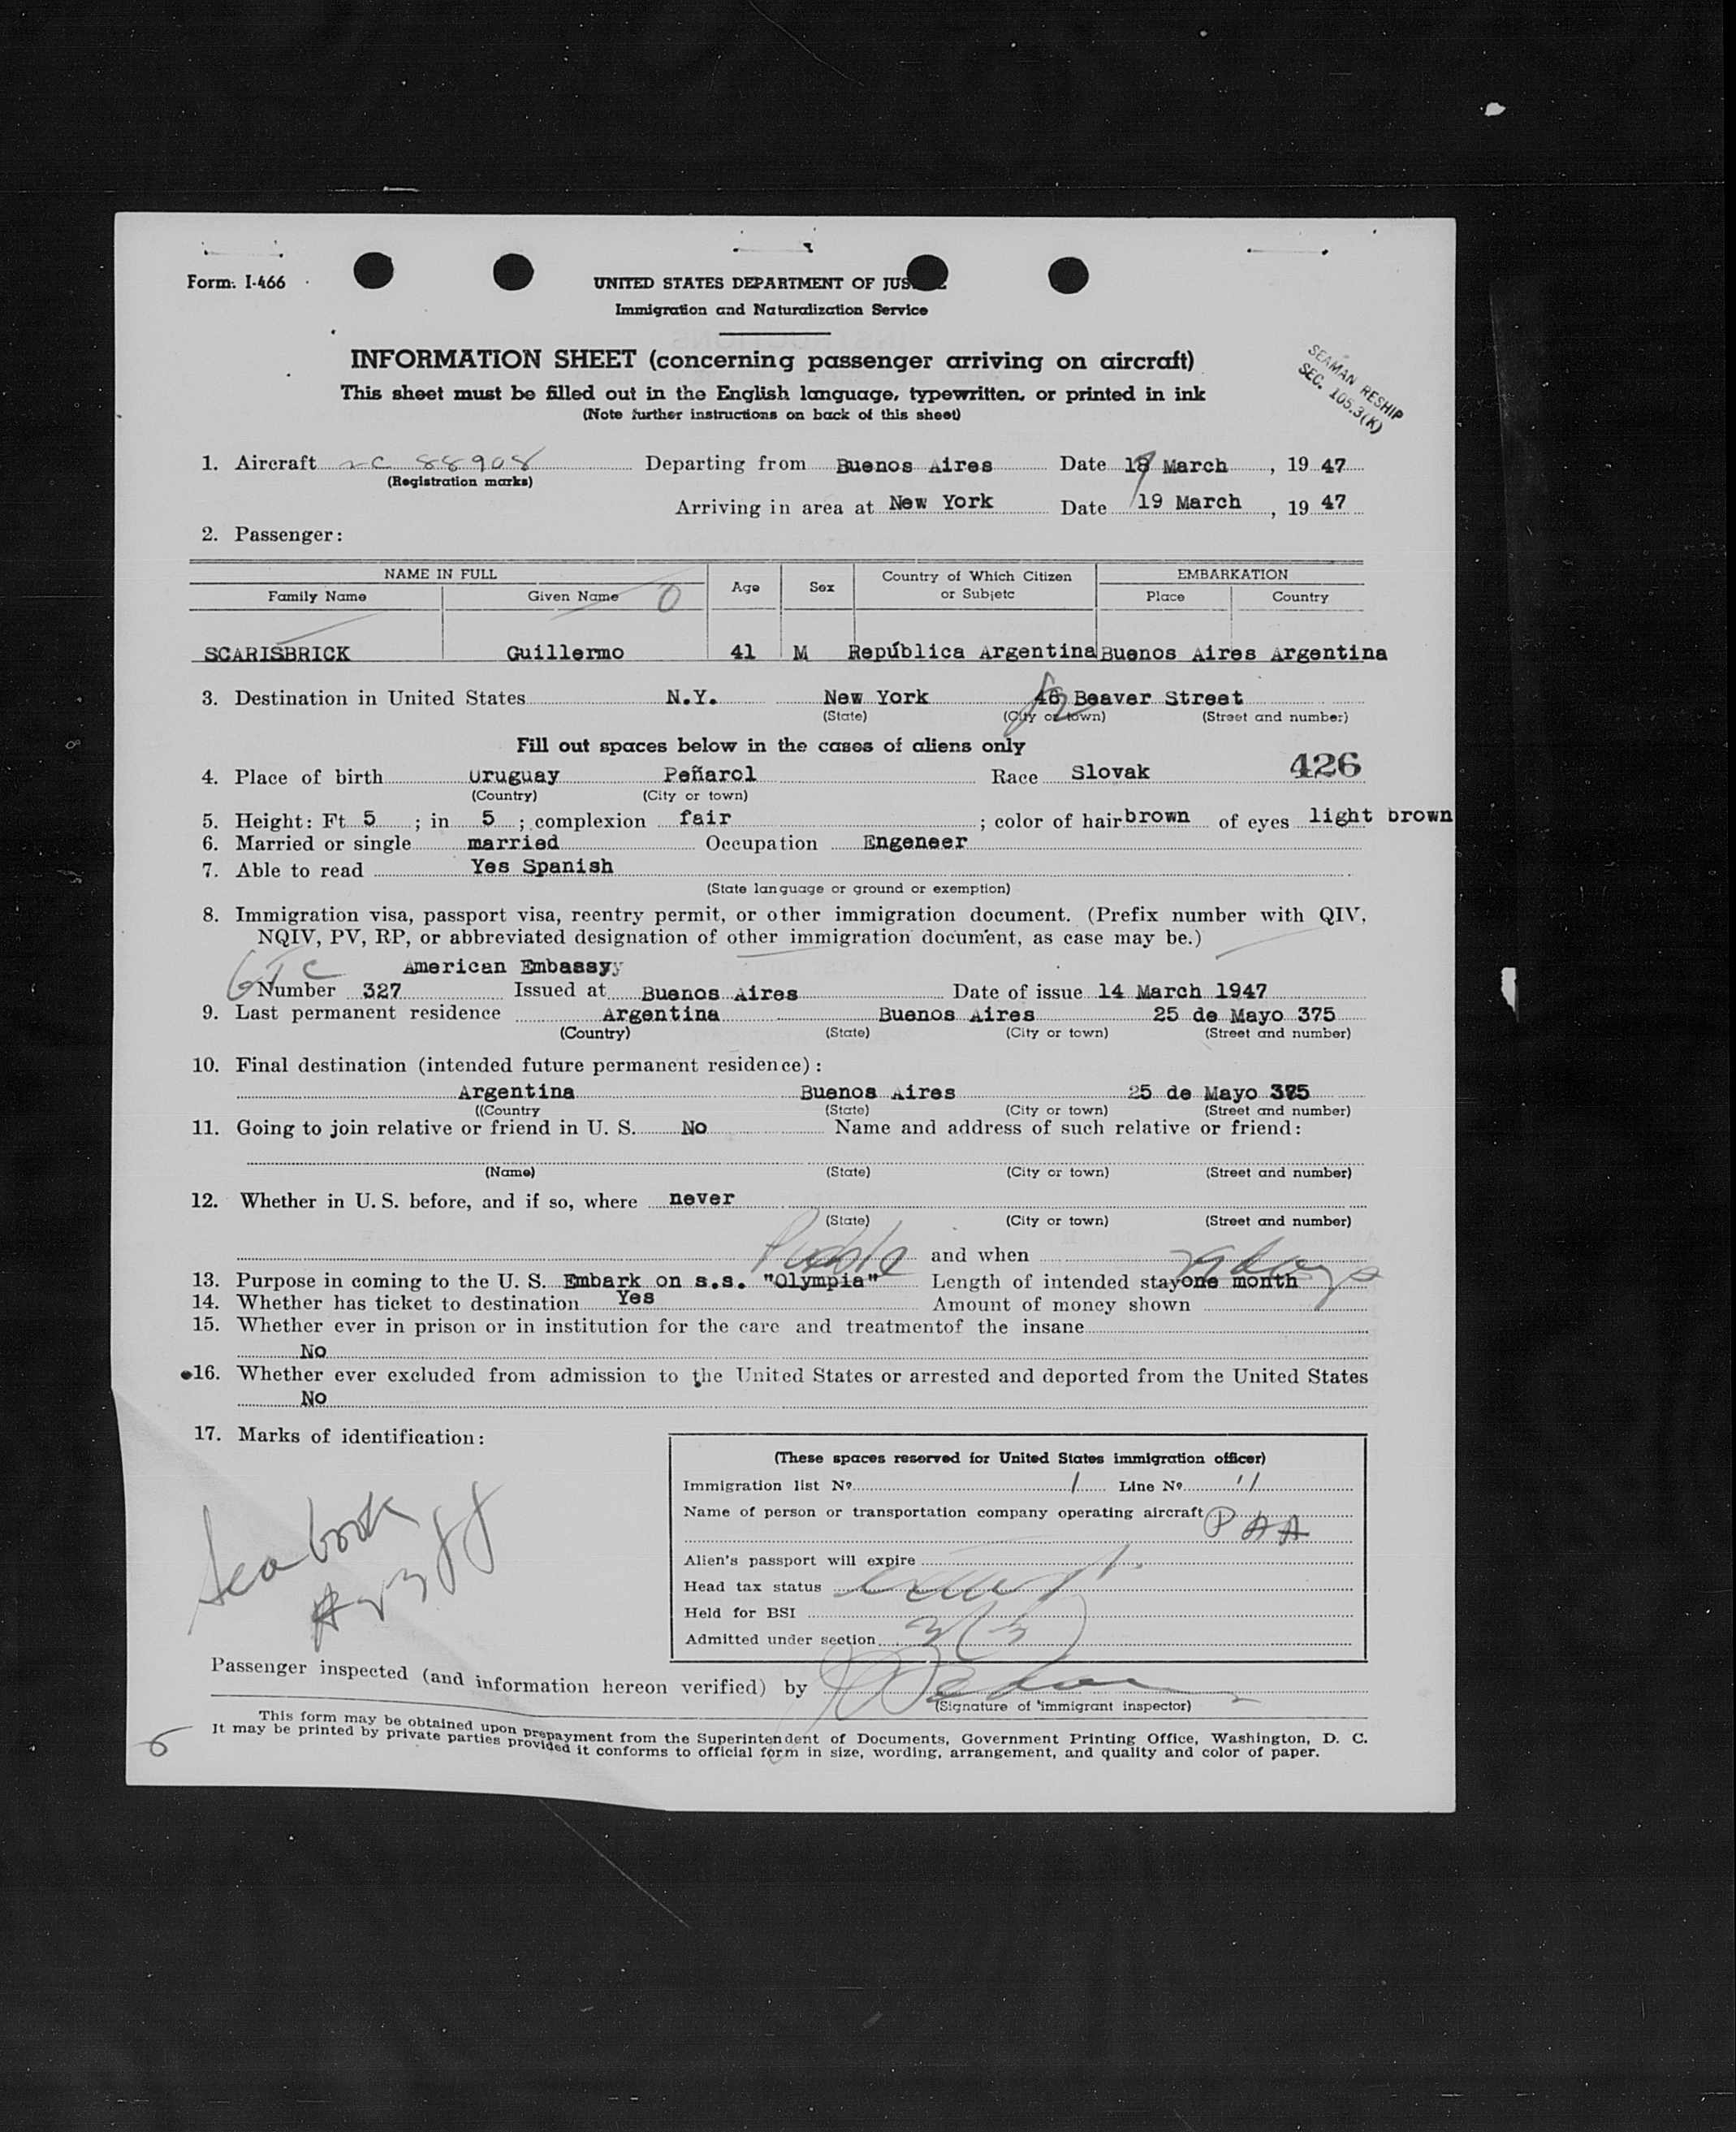 Form: I-466
UNITED STATES DEPARTMENT OF JUS
Immigration and Naturalization Service
INFORMATION SHEET (concerning passenger arriving on aircraft)
This sheet must be filled out in the English language, typewritten, or printed in ink
(Note further instructions on back of this sheet)
SEAMAN RESHIP
SEC. 105.3(K)
1. Aircraft NC 88908 Departing from Buenos Aires Date 18 March, 19 47
(Registration marks)
Arriving in area at New York Date 19 March, 19 47
2. Passenger:
NAME IN FULL Age Sex Country of Which Citizen or Subjetc EMBARKATION
Family Name Given Name Place Country
SCARISBRICK Guillermo 41 M República Argentina Buenos Aires Argentina
3. Destination in United States N.Y. New York 46 Beaver Street
(State) (City or town) (Street and number)
Fill out spaces below in the cases of aliens only
426
4. Place of birth Uruguay Peñarol Race Slovak
(Country) (City or town)
5. Height: Ft 5 ; in 5 ; complexion fair ; color of hair brown of eyes light brown
6. Married or single married Occupation Engeneer
7. Able to read Yes Spanish
(State language or ground or exemption)
8. Immigration visa, passport visa, reentry permit, or other immigration document. (Prefix number with QIV,
NQIV, PV, RP, or abbreviated designation of other immigration document, as case may be.)
American Embassy
Number 327 Issued at Buenos Aires Date of issue 14 March 1947
9. Last permanent residence Argentina Buenos Aires 25 de Mayo 375
(Country) (State) (City or town) (Street and number)
10. Final destination (intended future permanent residence):
Argentina Buenos Aires 25 de Mayo 375
((Country (State) (City or town) (Street and number)
11. Going to join relative or friend in U. S. No Name and address of such relative or friend:
(Name) (State) (City or town) (Street and number)
12. Whether in U. S. before, and if so, where never
(State) (City or town) (Street and number)
and when
13. Purpose in coming to the U. S. Embark on s.s. "Olympia" Length of intended stay one month
14. Whether has ticket to destination Yes Amount of money shown
15. Whether ever in prison or in institution for the care and treatmentof the insane
No
16. Whether ever excluded from admission to the United States or arrested and deported from the United States
No
17. Marks of identification:
Sea book
(These spaces reserved for United States immigration officer)
Immigration list Nº 1 Line Nº 11
Name of person or transportation company operating aircraft PAA
Alien's passport will expire
Head tax status
Held for BSI
Admitted under section 3(5)
Passenger inspected (and information hereon verified) by
(Signature of immigrant inspector)
This form may be obtained upon prepayment from the Superintendent of Documents, Government Printing Office, Washington, D. C.
It may be printed by private parties provided it conforms to official form in size, wording, arrangement, and quality and color of paper.